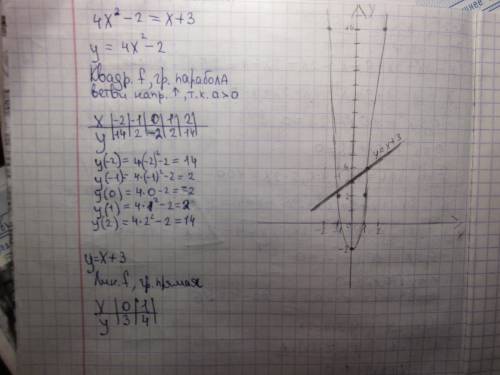 4x² - 2 = x + 3
y = 4x² - 2
Квадр. f, гр. парабола
ветви напр. ↑, т.к. a>0
x | -2 | -1 | 0 | 1 | 2
y | 14 | 2 | -2 | 2 | 14
y(-2) = 4·(-2)² - 2 = 14
y(-1) = 4·(-1)² - 2 = 2
y(0) = 4·0 - 2 = -2
y(1) = 4·1² - 2 = 2
y(2) = 4·2² - 2 = 14
y = x + 3
Лин. f, гр. прямая
x | 0 | 1
y | 3 | 4
y
y = x + 3
4
2
-2
-1
1
2
-2
x